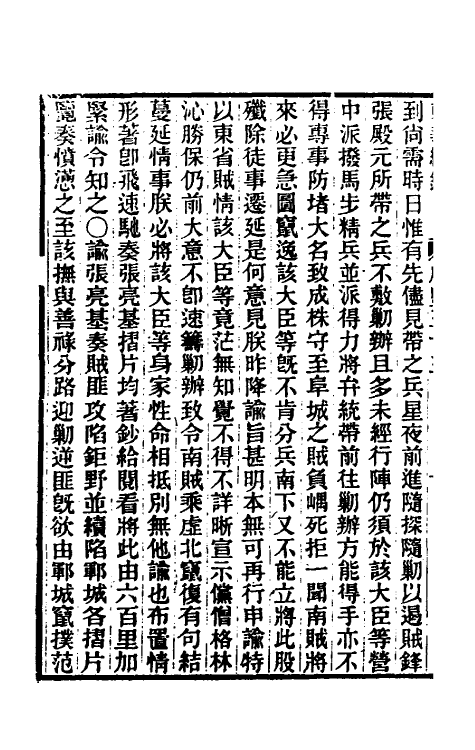 到尙需時日惟有先儘見帶之兵星夜前進隨探隨勦以遏賊鋒
張殿元所帶之兵不敷勦辦且多未經行陣仍須於該大臣等營
中派撥馬步精兵並派得力將弁統帶前往勦辦方能得手亦不
得專事防堵大名致成株守至阜城之賊負嵎死拒一聞南賊將
來必更急圖竄逸該大臣等旣不肯分兵南下又不能立將此股
殲除徒事遷延是何意見朕昨降諭旨甚明本無可再行申諭特
以東省賊情該大臣等竟茫無知覺不得不詳晰宣示儻僧格林
沁勝保仍前大意不卽速籌勦辦致令南賊乘虛北竄復有勾結
蔓延情事朕必將該大臣等身家性命相抵別無他諭也布置情
形著卽飛速馳奏張亮基摺片均著鈔給閱看將此由六百里加
緊諭令知之〇諭張亮基奏賊匪攻陷鉅野並續陷鄆城各摺片
覽奏憤懣之至該撫與善祿分路迎勦逆匪旣欲由鄆城竄撲范